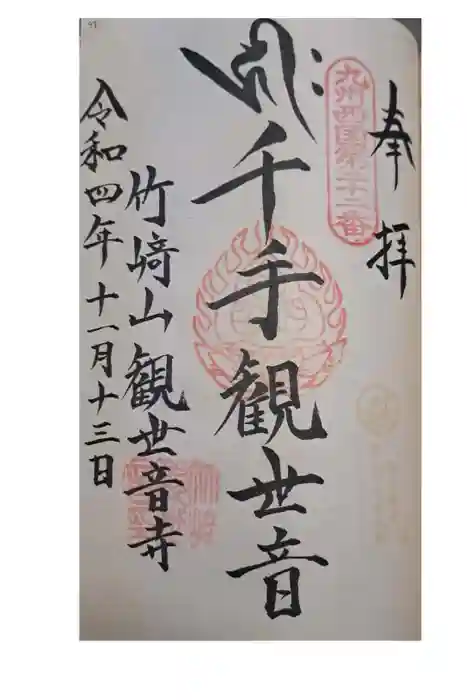 奉拝
九州西国第二十二番
千手観世音
竹﨑山観世音寺
令和四年十一月十三日